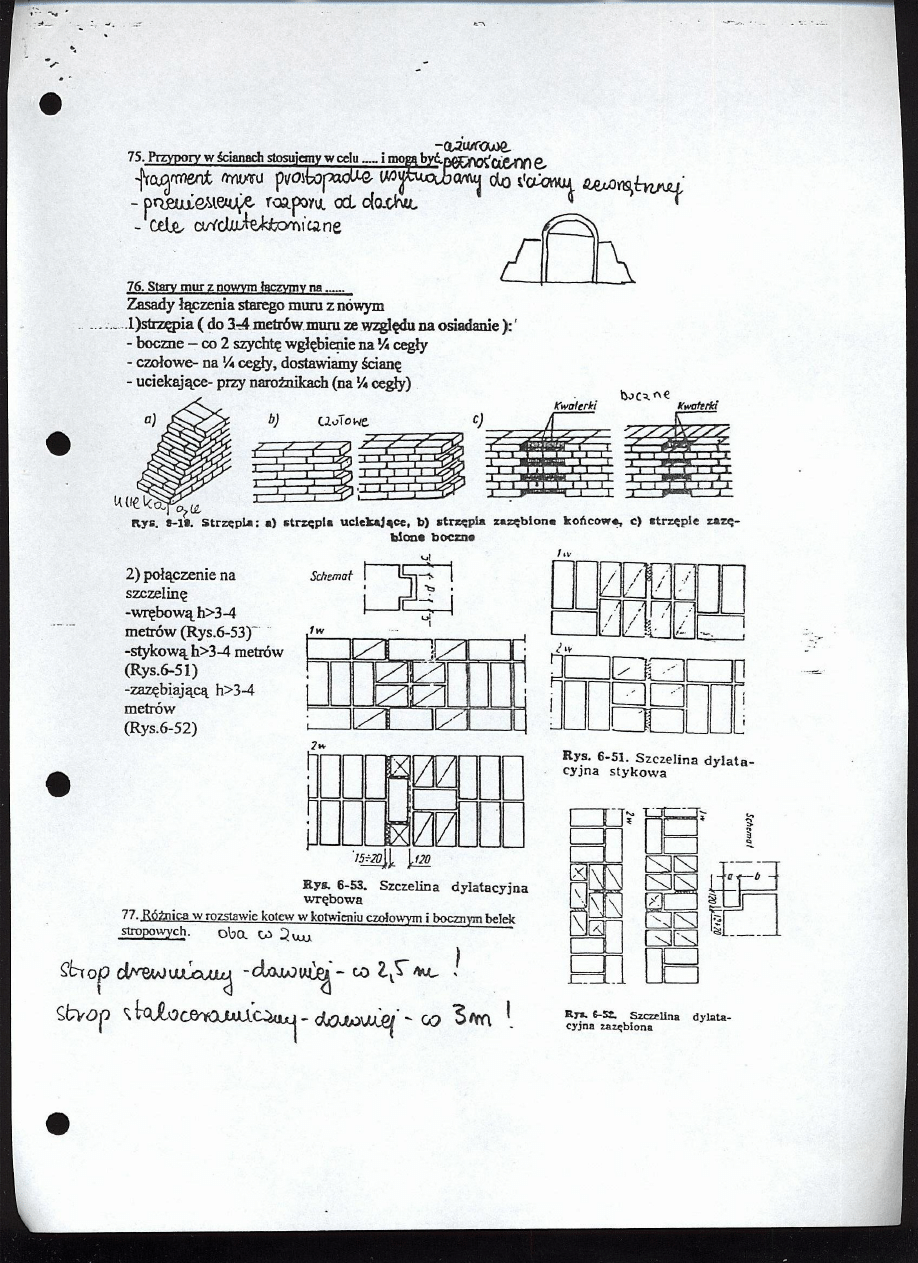 -ażurowe
75. Przypory w ścianach stosujemy w celu ..... i mogą być -pełnościenne
-fragment muru prostopadle usytuowany do ściany zewnętrznej
- przeniesienie rozporu od dachu
- cele architektoniczne
76. Stary mur z nowym łączymy na ......
Zasady łączenia starego muru z nowym
1)strzępia ( do 3-4 metrów muru ze względu na osiadanie ):
- boczne – co 2 szychtę wgłębienie na ¼ cegły
- czołowe- na ¼ cegły, dostawiamy ścianę
- uciekające- przy narożnikach (na ¼ cegły)
a)
b) czołowe
c)
boczne
Kwaterki
Kwaterki
uciekające
Rys. 8-18. Strzępia: a) strzępia uciekające, b) strzępia zazębione końcowe, c) strzępie zazę-
bione boczne
2) połączenie na
szczelinę
-wrębową h>3-4
metrów (Rys.6-53)
-stykową h>3-4 metrów
(Rys.6-51)
-zazębiającą h>3-4
metrów
(Rys.6-52)
Schemat
1w
2w
15÷20
120
Rys. 6-53. Szczelina dylatacyjna
wrębowa
1w
2w
Rys. 6-51. Szczelina dylata-
cyjna stykowa
2w
1w
Schemat
a
b
Rys. 6-52. Szczelina dylata-
cyjna zazębiona
77. Różnica w rozstawie kotew w kotwieniu czołowym i bocznym belek
stropowych. oba co 2m
strop drewniany - dawniej - co 2,5 m !
strop staloceramiczny - dawniej - co 3m !